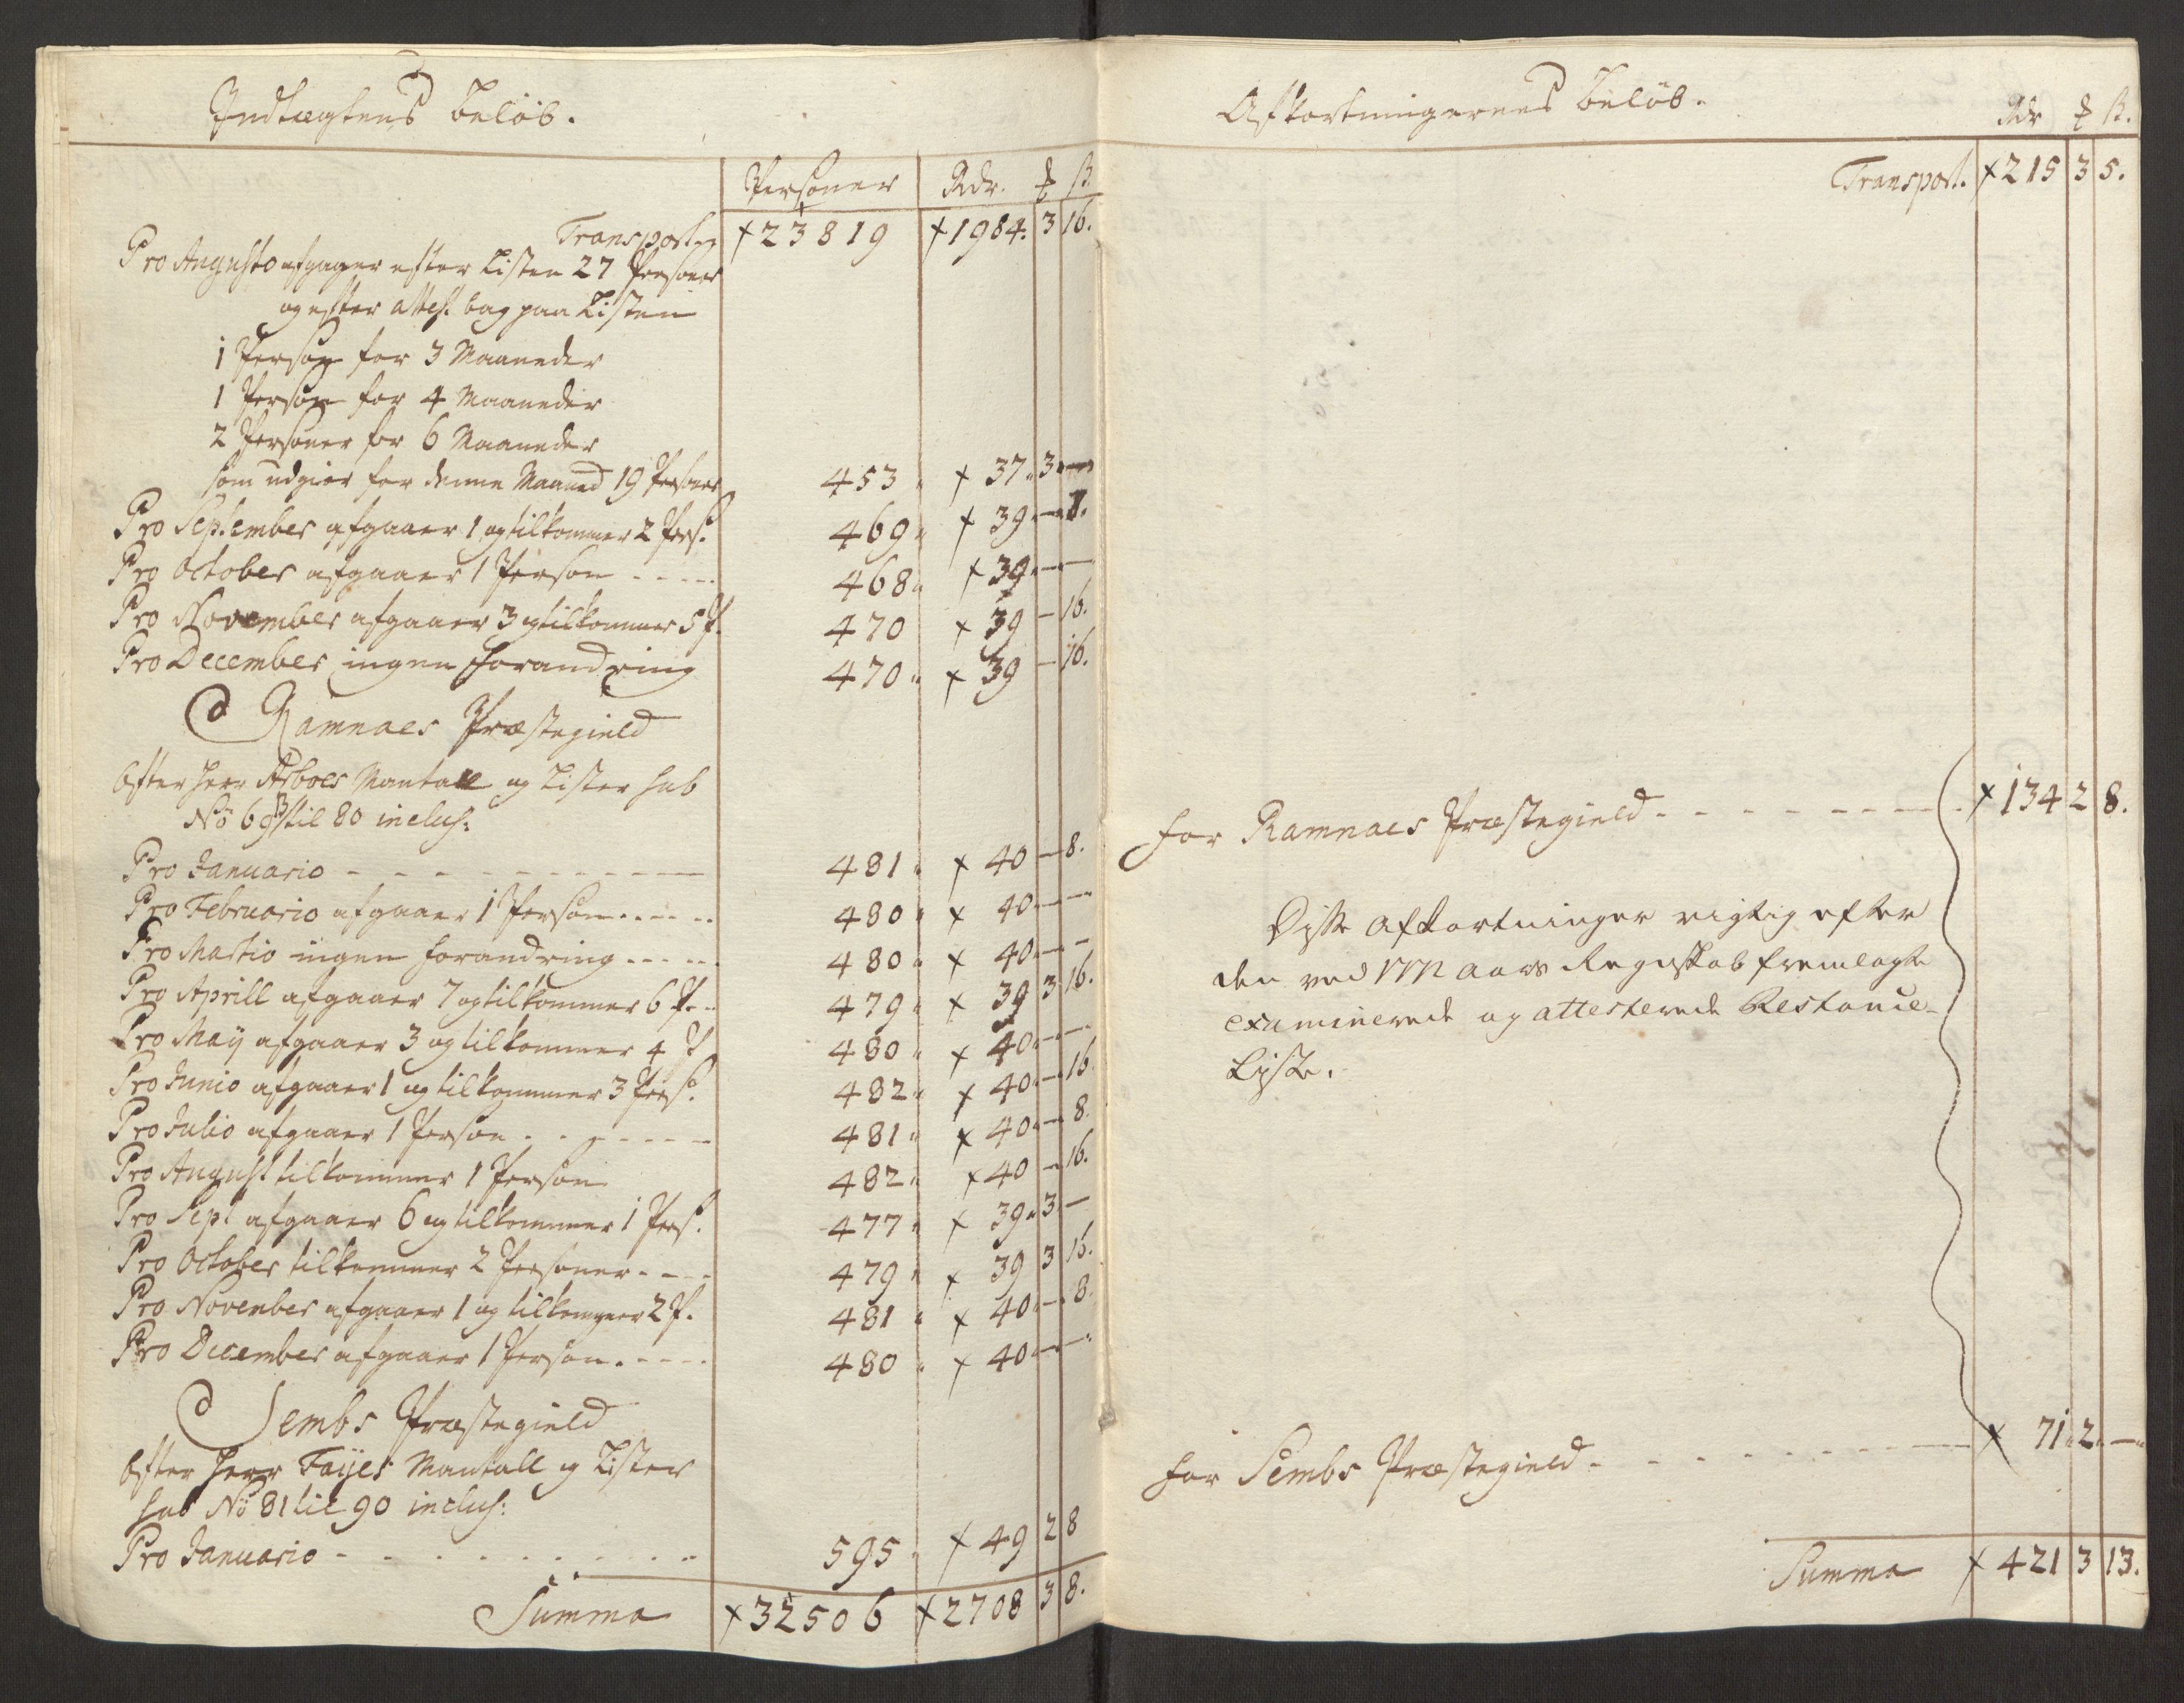 Indtægtens Beløb.
Personer Rdr. ß
Transporten × 23819 × 1984. 3 16.
Pro Augusto afgaaer efter Listen 27 Personer
og efter Attest. bag paa Listen
1 Person for 3 Maaneder
1 Person for 4 Maaneder
2 Personer for 6 Maaneder
som udgiør for denne Maaned 19 Personer 453 × 37. 3 —
Pro September afgaaer 1 og tilkommer 2 Pers. 469 × 39 — 8.
Pro October afgaaer 1 Person - - - - - 468 × 39 — —
Pro November afgaaer 3 og tilkommer 5 P. 470 × 39 — 16.
Pro December ingen Forandring 470 × 39 — 16.
Ramnæs Præstegield
Efter Herr Asboes Mantall og Lister sub
No 69 til 80 inclus:
Pro Januario - - - - - - - - 481 × 40 — 8.
Pro Februario afgaaer 1 Person - - - - - 480 × 40 — —
Pro Martio ingen Forandring - - - - - 480 × 40 — —
Pro Aprill afgaaer 7 og tilkommer 6 P. - - 479 × 39 3 16.
Pro Maÿ afgaaer 3 og tilkommer 4 P 480 × 40 — —
Pro Junio afgaaer 1 og tilkommer 3 Pers. 482 × 40 — 16.
Pro Julio afgaaer 1 Person - - - - - - 481 × 40 — 8.
Pro August tilkommer 1 Person 482 × 40 — 16.
Pro Sept afgaaer 6 og tilkommer 1 Pers. 477 × 39 3 —
Pro October tilkommer 2 Personer - - - - 479 × 39 3 16.
Pro November afgaaer 1 og tilkommer 2 P. 481 × 40 — 8.
Pro December afgaaer 1 Person - - - - - 480 × 40 — —
Sembs Præstegield
Efter Herr Fayes Mantall og Lister
sub No 81 til 90 inclus:
Pro Januario - - - - - - - - - 595 × 49 2 8
Summa × 32506 × 2708 3 8.
Afkortningernes Beløb.
Rdr ß.
Transport. × 215 3 5.
For Ramnæs Præstegield - - - - - - - - × 134 2 8.
Disse Afkortninger rigtig efter
den ved 1772 Aars Regnskab fremlagte
examinerede og attesterede Restance-
Liste.
For Sembs Præstegield - - - - - - - - × 71 2 —
Summa × 421 3 13.